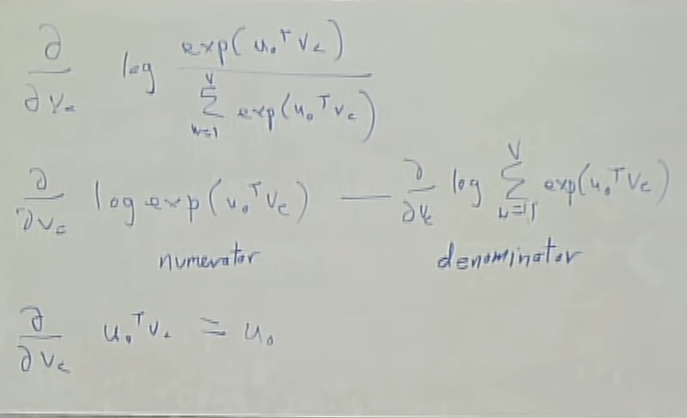 ∂/∂v_c log exp(u_o^T v_c) / Σ_{w=1}^{V} exp(u_o^T v_c)
∂/∂v_c log exp(u_o^T v_c) — ∂/∂v_c log Σ_{w=1}^{V} exp(u_o^T v_c)
numerator denominator
∂/∂v_c u_o^T v_c = u_o